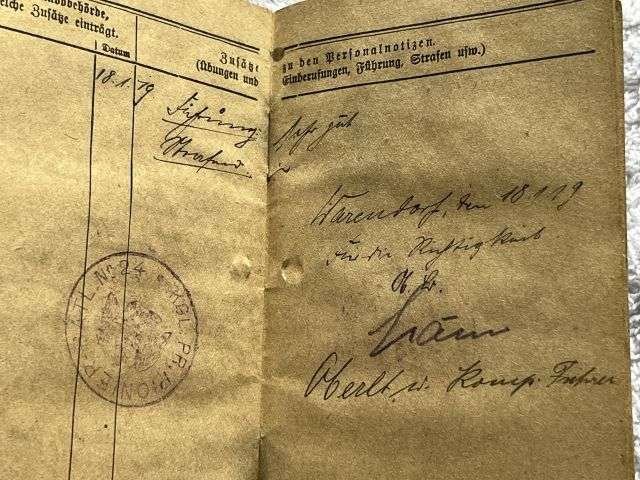 elche Zusätze einträgt.
Datum
Zusätze zu den Personalnotizen.
(Übungen und Einberufungen, Führung, Strafen usw.)
18.1.19 Führung: sehr gut
Strafen:
Warendorf, den 18.1.19
Für die Richtigkeit
Oberlt. u. Komp. Führer
KGL. PR. PIONIER No 24